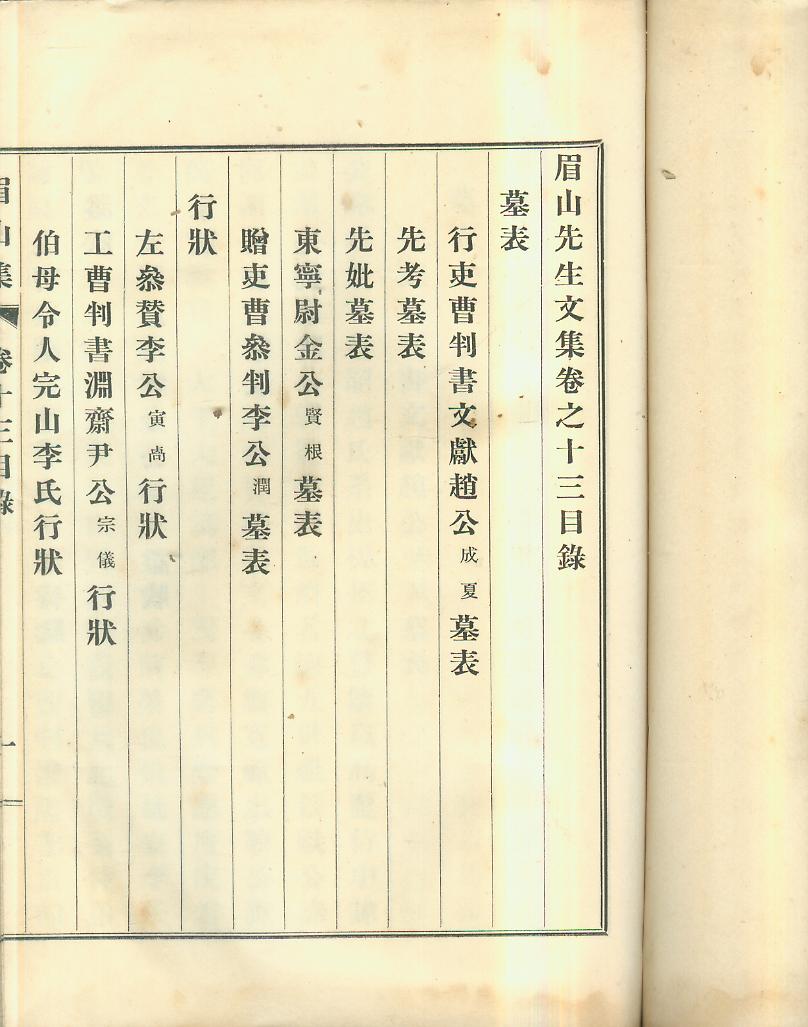 眉山先生文集卷之十三目錄
墓表
行吏曹判書文獻趙公成夏墓表
先考墓表
先妣墓表
東寧尉金公賢根墓表
贈吏曹叅判李公潤墓表
行狀
左叅贊李公寅卨行狀
工曹判書淵齋尹公宗儀行狀
伯母令人完山李氏行狀
眉山集 卷十三目錄 一